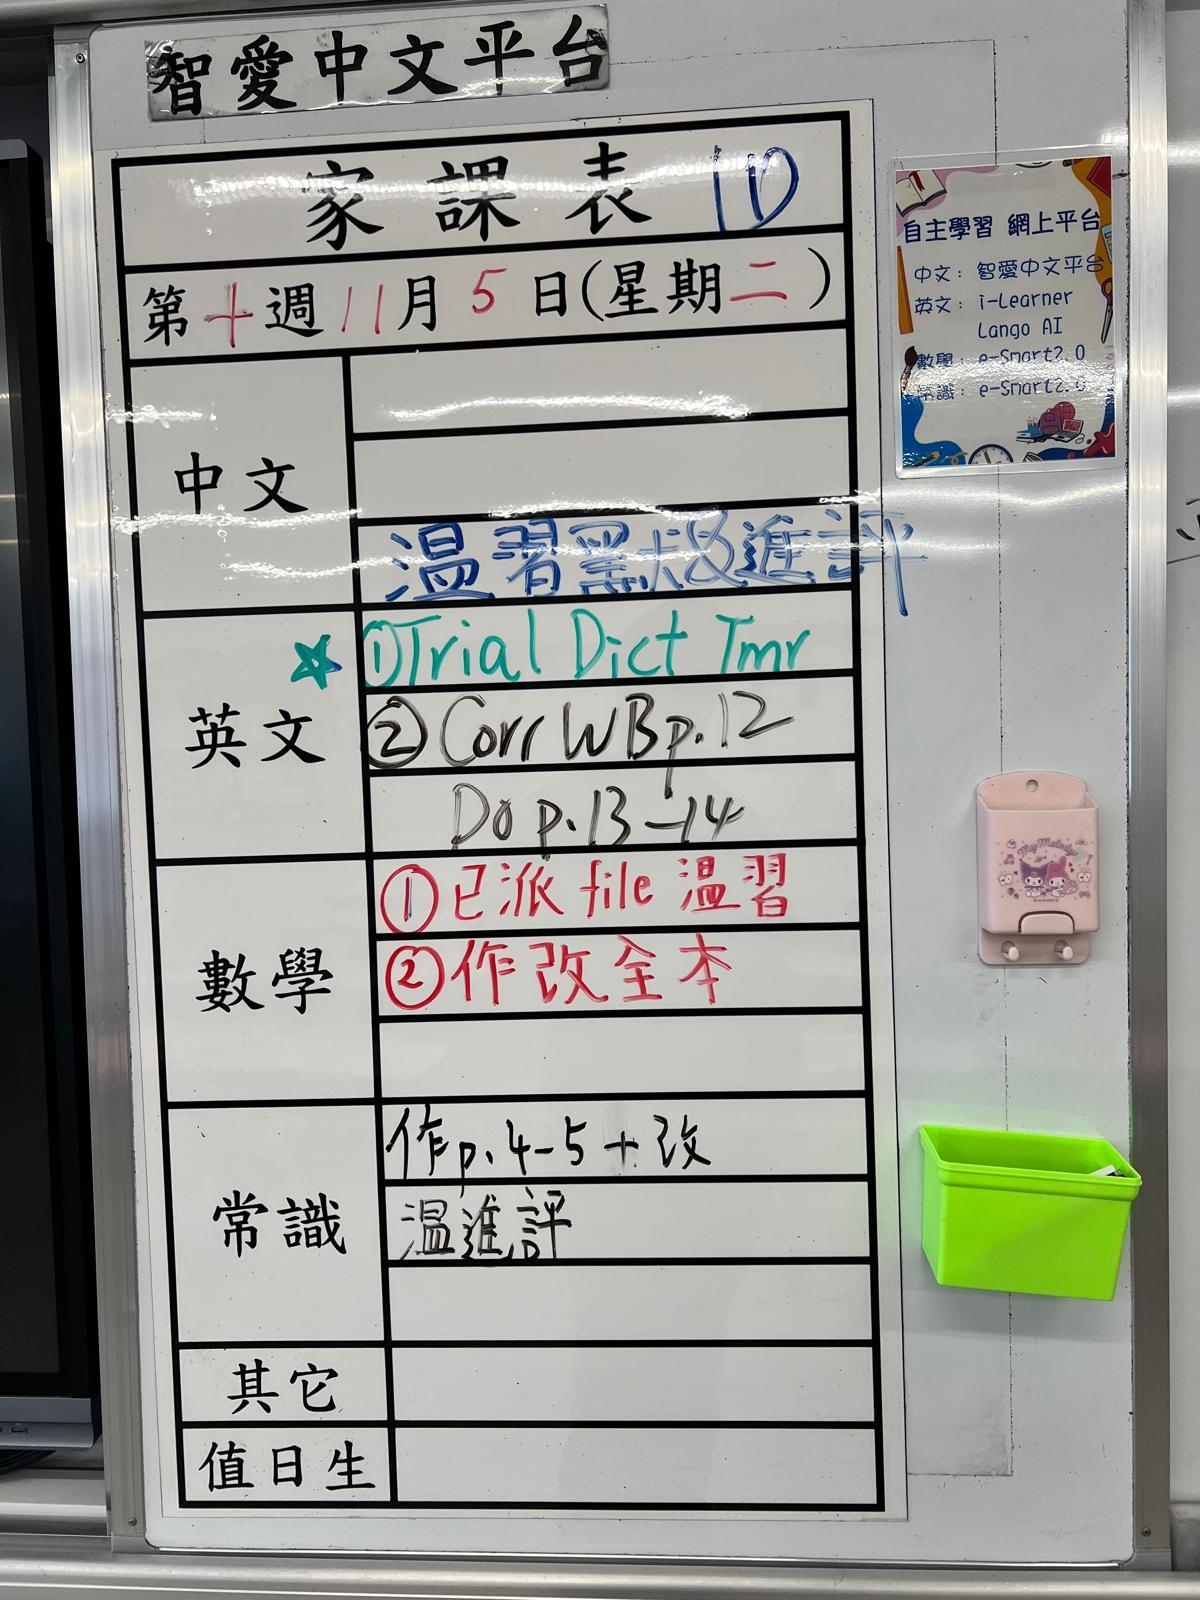 智愛中文平台
家課表 1D
第十週11月5日(星期二)
中文
温習默書及進評
英文
①Trial Dict Tmr
②Corr WB p.12
Do p.13-14
數學
①已派file温習
②作改全本
常識
作p.4-5+改
温進評
其它
值日生
自主學習 網上平台
中文: 智愛中文平台
英文: i-Learner
Lango AI
數學: e-Smart2.0
常識: e-Smart2.0
My Melody